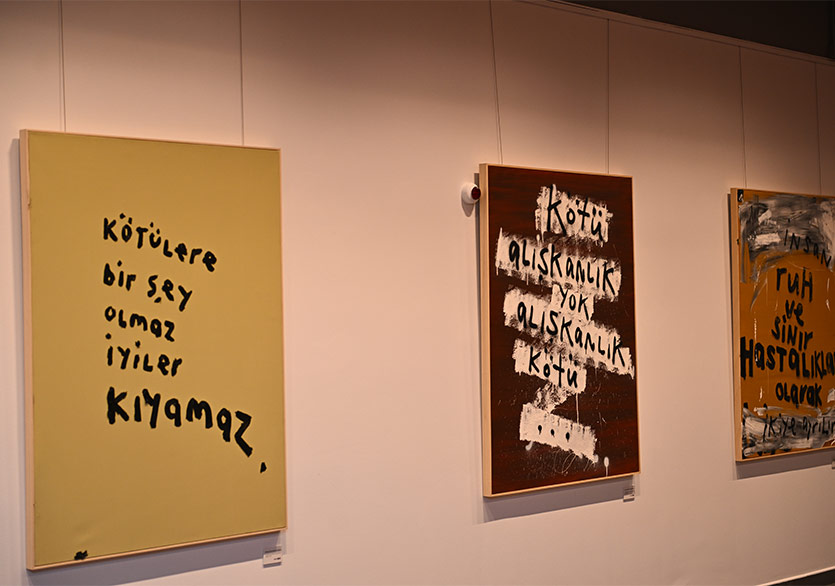 KÖTÜLERE
bir şey
OLMAZ
iYiLER
KIYAMAZ.
KÖTÜ
ALISKANLIK
YOK
ALISKANLIK
KÖTÜ
...
iNSAN
RUH
ve
SiNiR
HASTALIKLA
OLARAK
iKiYE AYRILIR